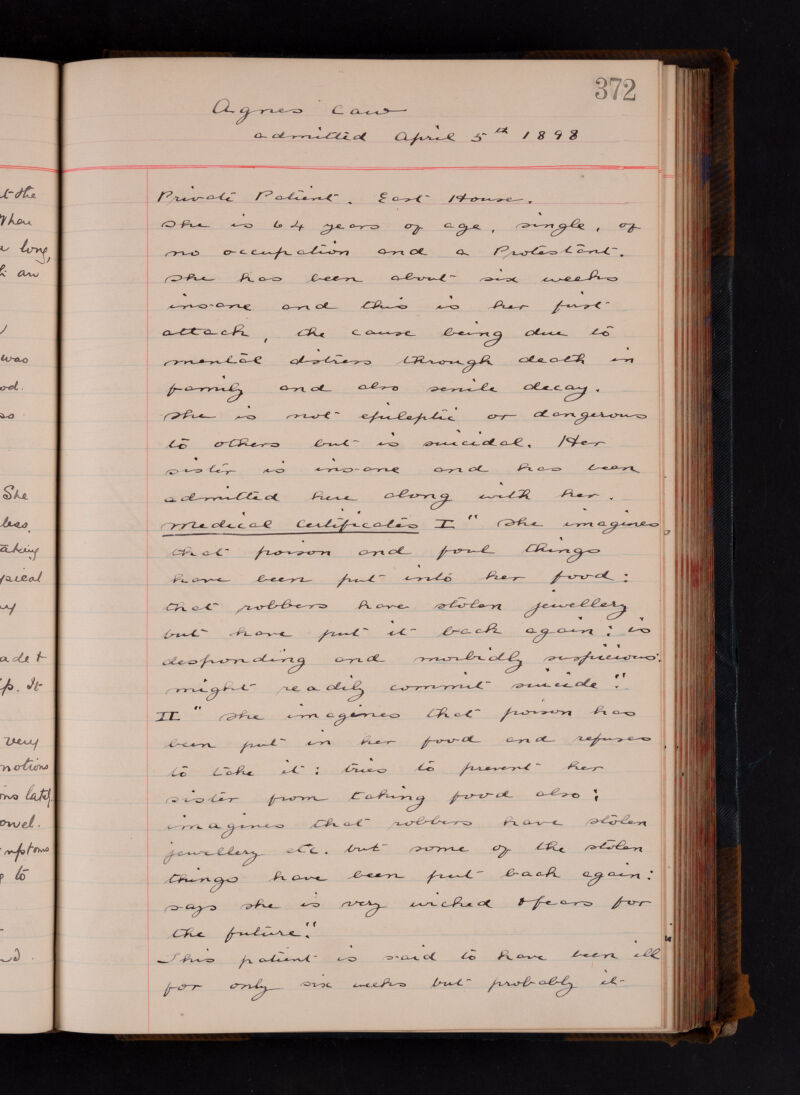 t the
When
a long,
an
was
od.
so
She
less.
taking
ysical
ade &
p. It
very
notions
ms lately.
owel.
mptoms
to
372
Agnes Caw
admitted April 5th 1898
Private Patient. East House.
She is 64 years of age, single, of
no occupation and a Protestant.
She has been about six weeks
insane and this is her first
attack, the cause being due to
mental distress through death in
family and also senile decay.
She is not epileptic or dangerous
to others but is suicidal. Her
sister is insane and has been
admitted here along with her.
Medical Certificates I "She imagines
that poison and foul things
have been put into her food:
that robbers have stolen jewellery
but have put it back again: is
desponding and morbidly suspicious:
might readily commit suicide."
II "She imagines that poison has
been put in her food and refuses
to take it: tries to prevent her
sister from taking food also:
imagines that robbers have stolen
jewellery etc. but some of the stolen
things have been put back again:
says she is very wicked & fears for
the future."
This patient is said to have been ill
for only six weeks but probably it